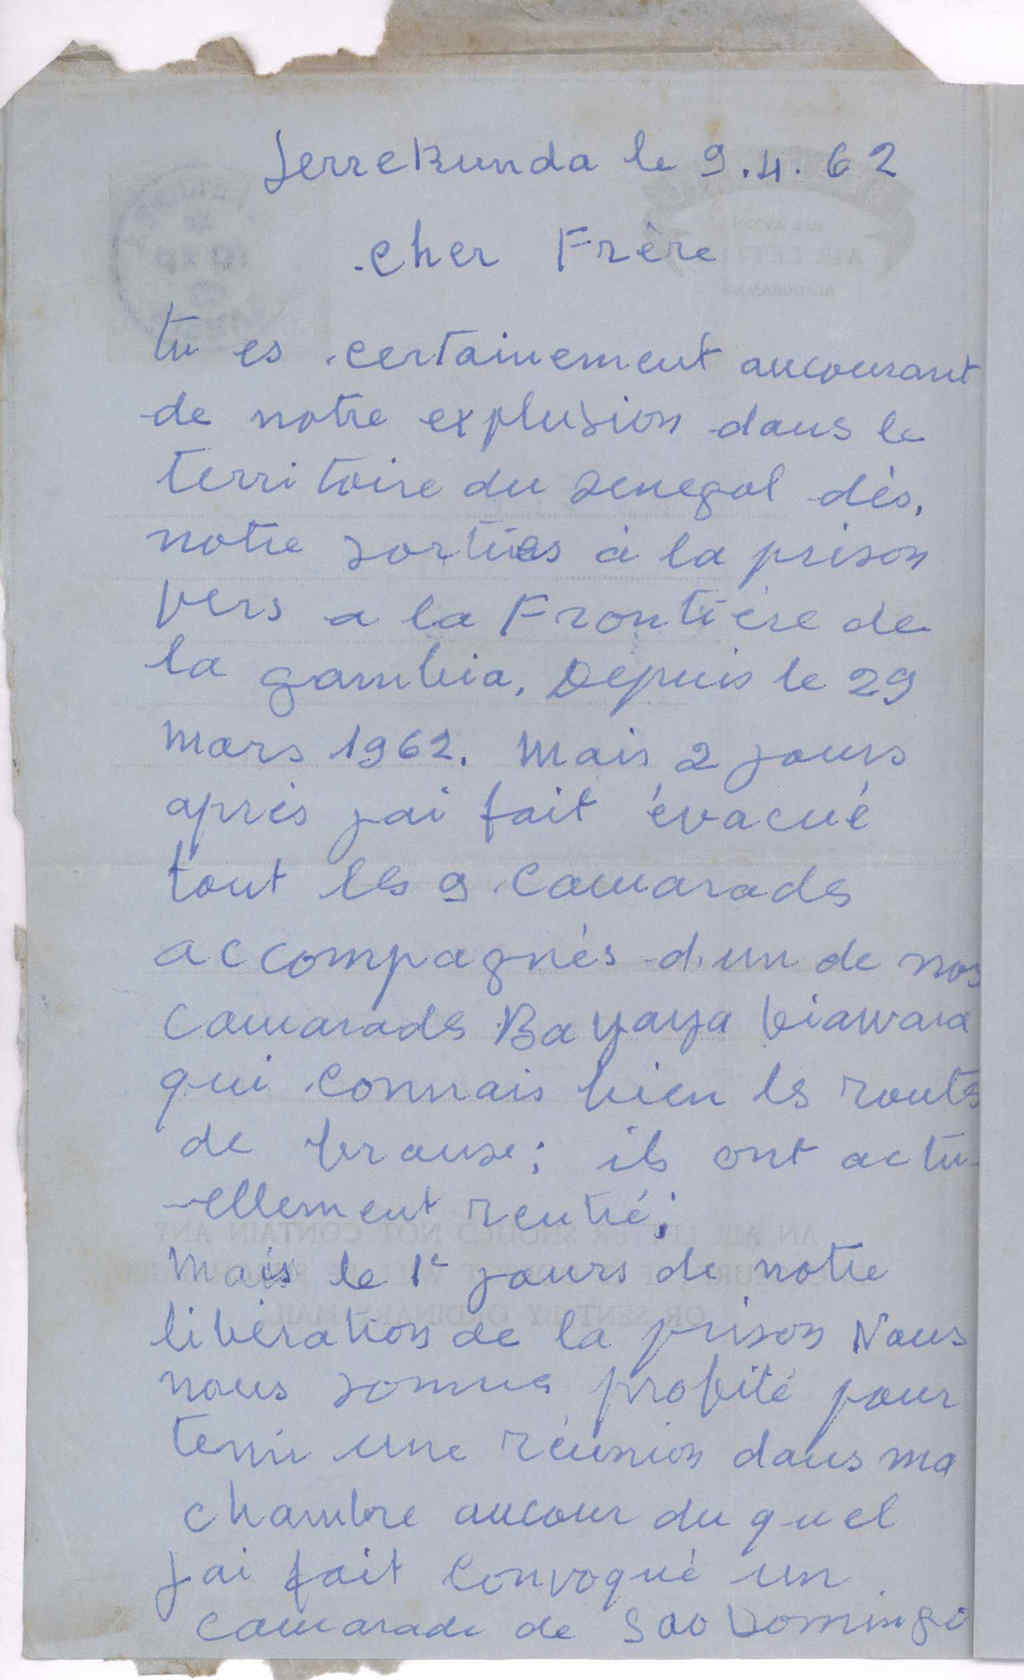 Serrekunda le 9.4.62
cher Frère
tu es certainement aucourant
de notre explusion dans le
territoire du senegal dès,
notre sorties à la prison
vers a la Frontière de
la gambia, Depuis le 29
mars 1962. Mais 2 jours
après jai fait évacué
tout les 9 camarads
accompagnés d'un de nos
camarads Ba yaya
qui connais bien ls routs
de ; ils ont actu-
-ellement rentré;
Mais le 1r jours de notre
libération de la prison Nous
nous sommes profité pour
tenir une réunion dans ma
chambre aucour du quel
jai fait convoqué un
camarade de Sao Domingo
AN AIR LETTER SHOULD NOT CONTAIN ANY
OR SENT BY ORDINARY MAIL